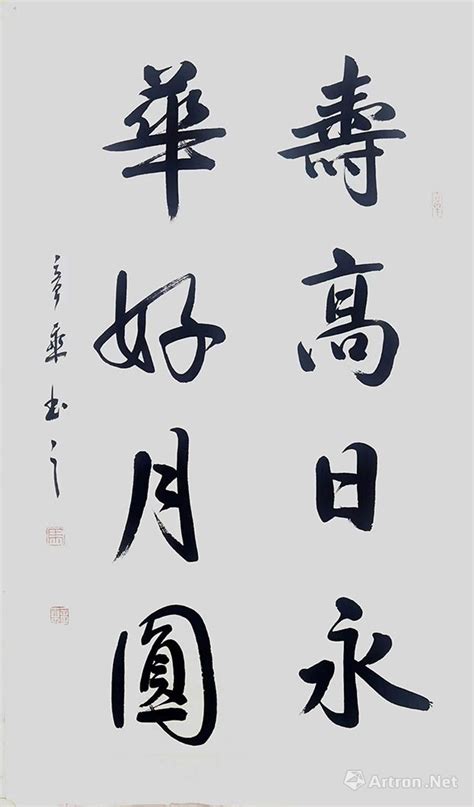 壽高日永
華好月圓
Artron.Net